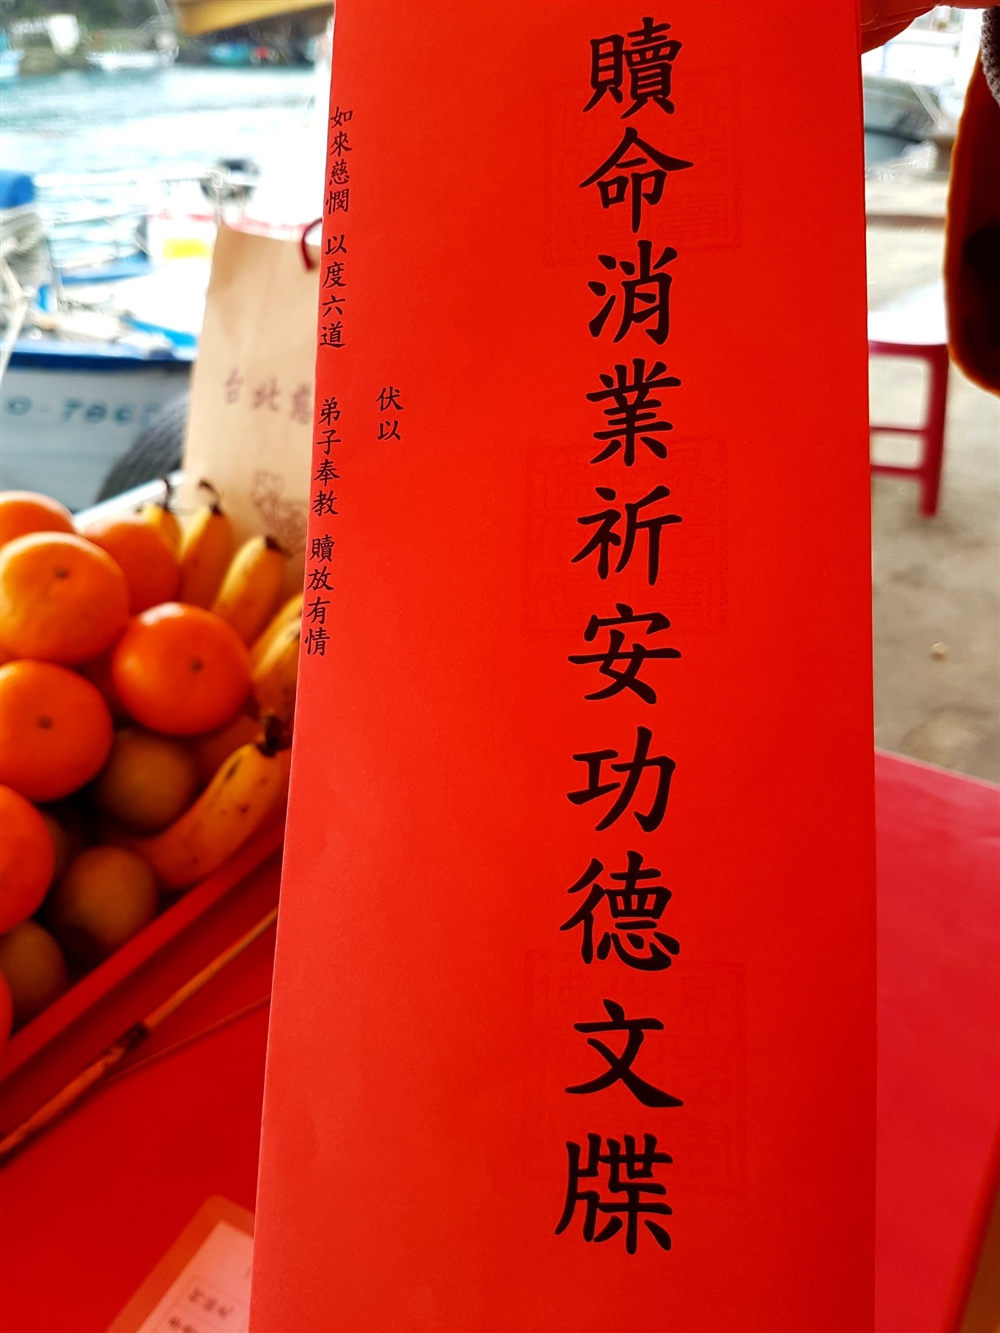 贖命消業祈安功德文牒
伏以
如來慈憫 以度六道 弟子奉教 贖放有情
台北慈